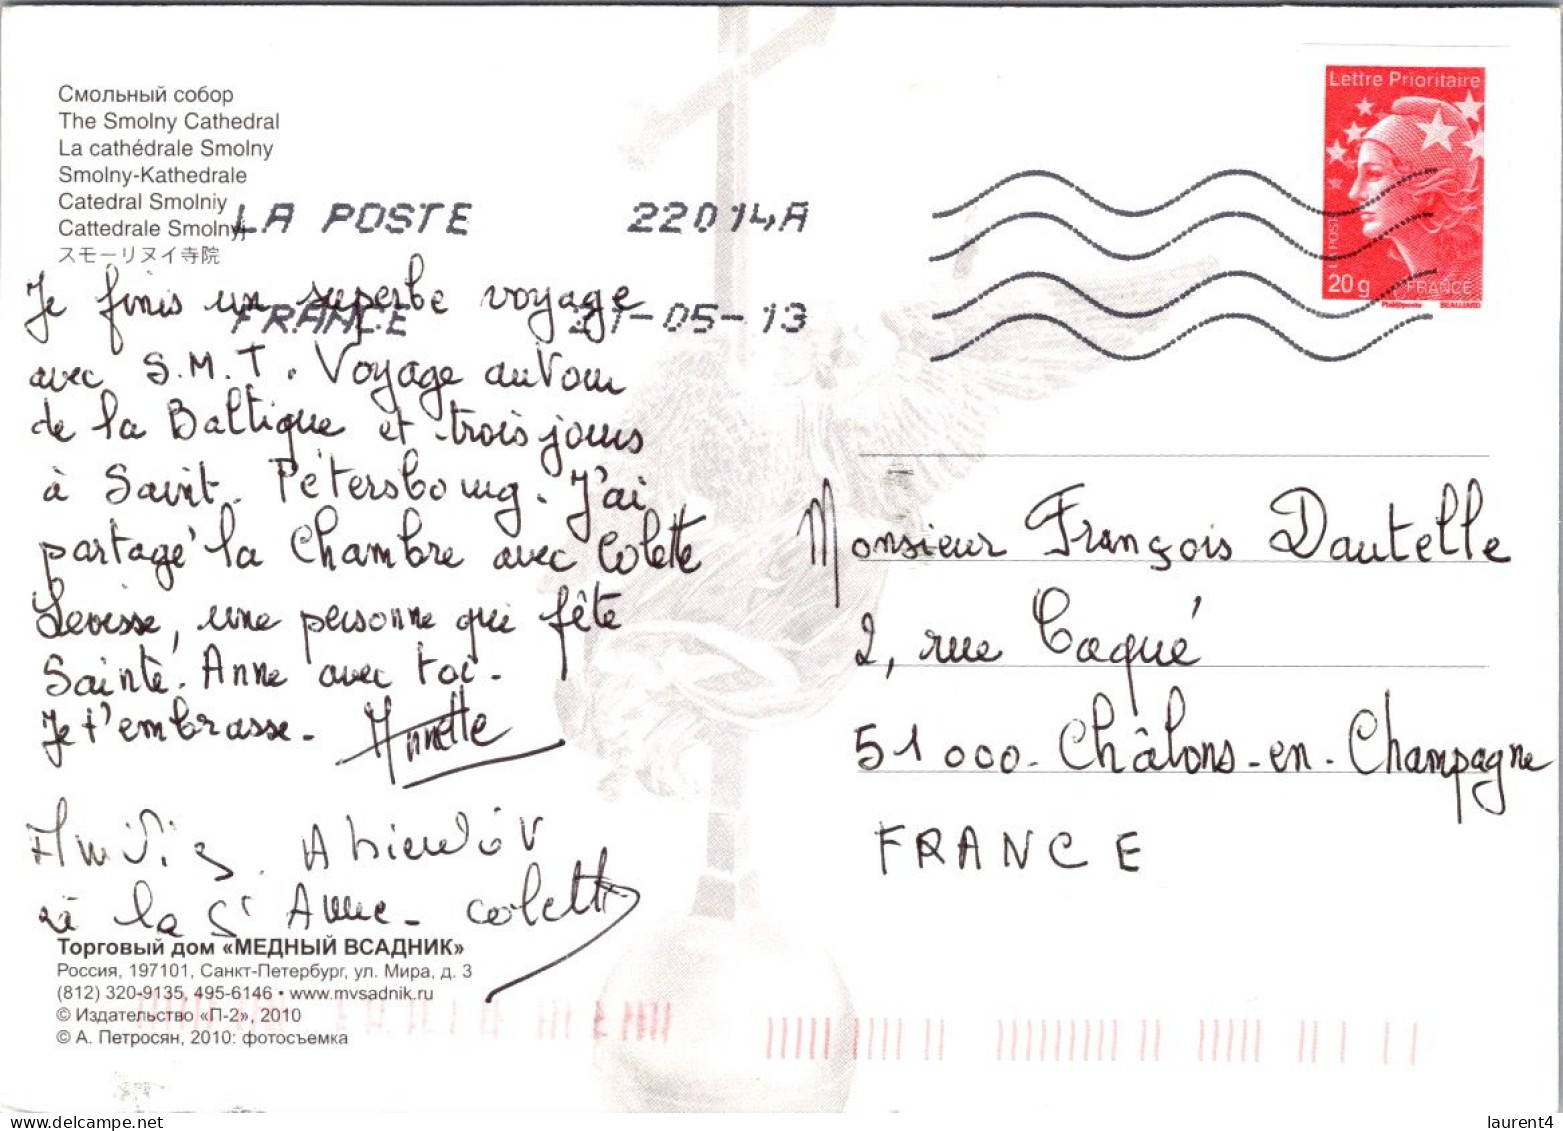 Смольный собор
The Smolny Cathedral
La cathédrale Smolny
Smolny-Kathedrale
Catedral Smolniy
Cattedrale Smolny,
スモーリヌイ寺院
LA POSTE 22014A
FRANCE 21-05-13
Lettre Prioritaire
LA POSTE
20g FRANCE
Phil@poste BEAUJARD
Je finis un superbe voyage
avec S.M.T. Voyage autour
de la Baltique et trois jours
à Saint-Pétersbourg. J'ai
partagé la Chambre avec Colette
une personne qui fête
Sainte-Anne avec toi.
Je t'embrasse. Annette
Amitiés. A bientôt
à la St Anne - Colette
Monsieur François Dautelle
2, rue Caqué
51000 - Châlons-en-Champagne
FRANCE
Торговый дом «МЕДНЫЙ ВСАДНИК»
Россия, 197101, Санкт-Петербург, ул. Мира, д. 3
(812) 320-9135, 495-6146 • www.mvsadnik.ru
© Издательство «П-2», 2010
© А. Петросян, 2010: фотосъемка
laurent4